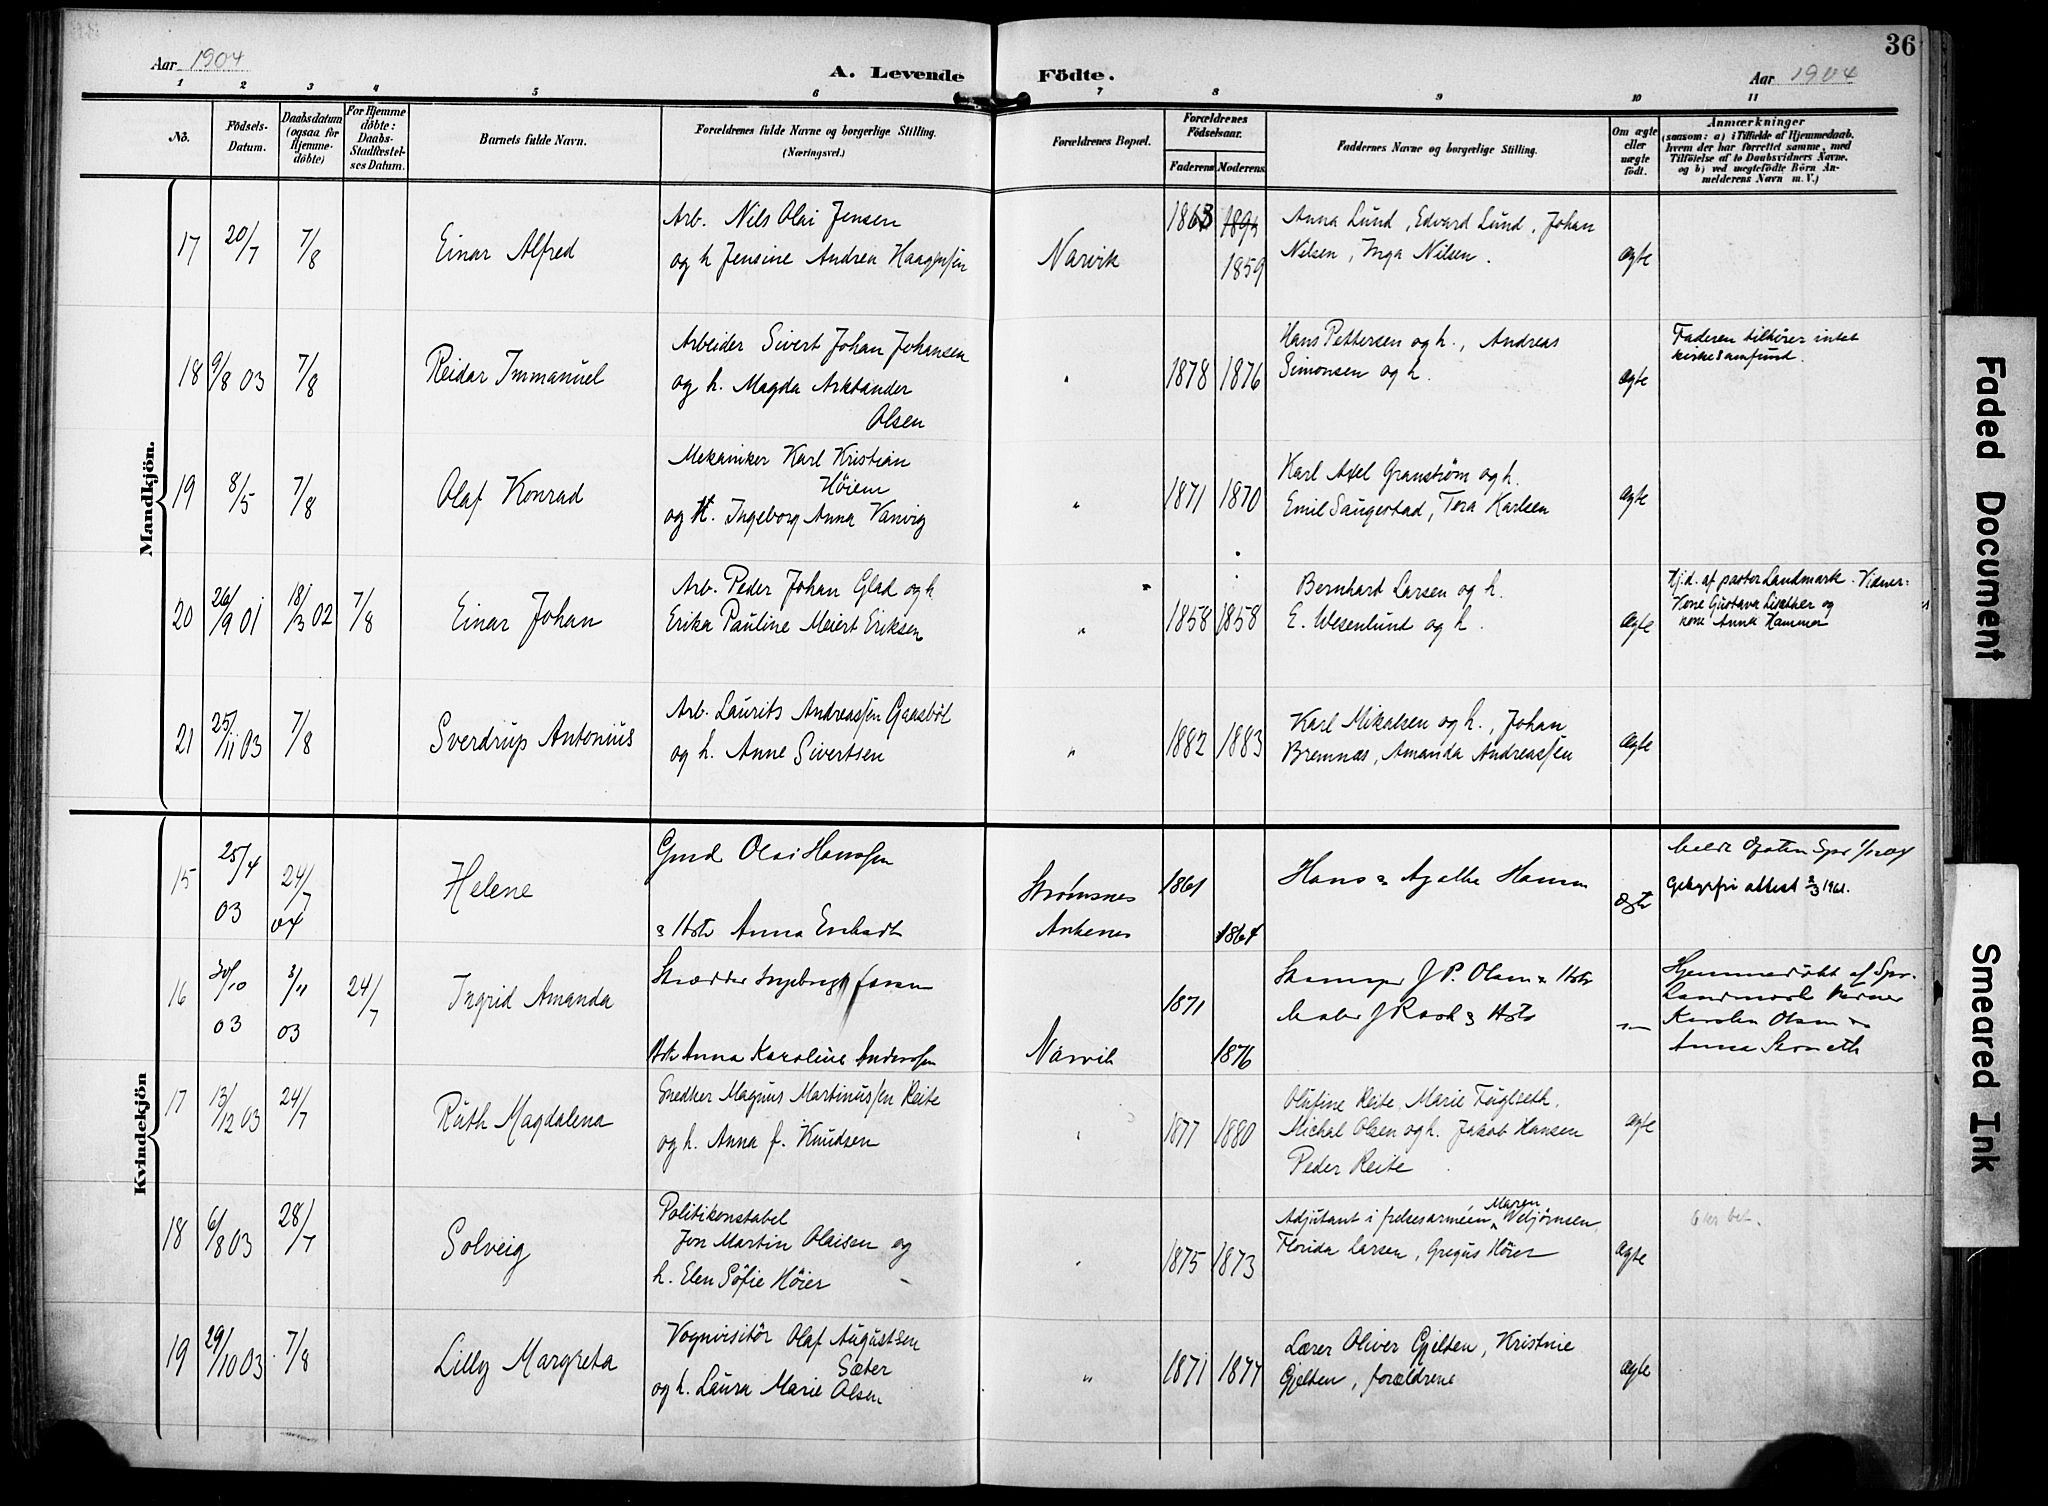 Aar 1904
A. Levende Födte.
Aar 1904
36
1 2 3 4 5 6 7 8 9 10 11
No.
Födsels-Datum.
Daabsdatum (ogsaa for Hjemme-döbte)
For Hjemme döbte: Daabs-Stadfæstel-ses Datum.
Barnets fulde Navn.
Forældrenes fulde Navne og borgerlige Stilling.
(Næringsvei.)
Forældrenes Bopæl.
Forældrenes Födselsaar.
Faderens Moderens
Faddernes Navne og borgerlige Stilling.
Om ægte eller uægte födt.
Anmærkninger
(saasom: a) i Tilfælde af Hjemmedaab,
hvem der har forrettet samme, med
Tilföielse af to Daabsvidners Navne.
og b) ved uægtefödte Börn An-
melderens Navn m. V.)
Mandkjön.
17 20/7 7/8 Einar Alfred
Arb. Nils Olai Jensen
og h Jensine Andrea Haagensen
Narvik 1863 1859
Anna Lund, Edvard Lund, Johan
Nilsen, Inga Nilsen.
ægte
18 9/8 03 7/8 Reidar Immanuel
Arbeider Sivert Johan Johansen
og h. Magda Arktander
Olsen
" 1878 1876
Hans Pettersen og h., Andreas
Simonsen og h.
ægte
Faderen tilhører intet
kirkesamfund.
19 8/5 7/8 Olaf Konrad
Mekaniker Karl Kristian
Höiem
og h. Ingeborg Anna Vanvig
" 1871 1870
Karl Axel Granström og h.
Emil Saugestad, Tora Karlsen
ægte
20 26/9 01 18/3 02 7/8 Einar Johan
Arb. Peder Johan Glad og h
Erika Pauline Meiert Eriksen
" 1858 1858
Bernhard Larsen og h.
E. Wesenlund og h.
ægte
Hj.d. af pastor Landmark. Vidner:
Kone Gustava Lisether og
kone Anna Hammer
21 25/11 03 7/8 Sverdrup Antonius
Arb. Laurits Andreassen Gaasböl
og h. Anne Sivertsen
" 1882 1883
Karl Mikalsen og h., Johan
Bremnæs, Amanda Andreassen
ægte
Kvindekjön
15 25/4 03 24/7 04 Helene
Gmd Olai Hanssen
& Hstr Anna Enhardt
Strømsnes
Ankenes
1861 1864
Hans & Agathe Hansen
ægte
Meldt Ofoten Spr
attest 2/3 1961.
16 30/10 03 3/11 03 24/7 Ingrid Amanda
Skrædder Ingebrigt
Hstr Anna Karoline Anderssen
Narvik 1871 1876
J P. Olsen & Hstr
Maler J Rask & Hstr
Hjemmedöbt af Spr.
Landmark Vidner
Karoline Olsen
Anna
17 13/12 03 24/7 Ruth Magdalena
Snedker Magnus Martinussen Reite
og h. Anna f. Knudsen
" 1877 1880
Olufine Reite, Marie Fuglseth.
Michal Olsen og h. Jakob Hansen
Peder Reite
ægte
18 6/8 03 28/7 Solveig
Politikonstabel
Jon Martin Olaisen og
h. Elen Söfie Höier
" 1875 1873
Adjutant i frelsesarmeen, Maren Vebjörnsen,
Florida Larsen, Gregus Höier
ægte
19 29/10 03 7/8 Lilly Margreta
Vognvisitör Olaf Augustsen
Sæter
og h. Laura Marie Olsen
" 1871 1877
Lærer Oliver Gjelten, Kristine
Gjelten, forældrene
ægte
Faded Document
Smeared Ink